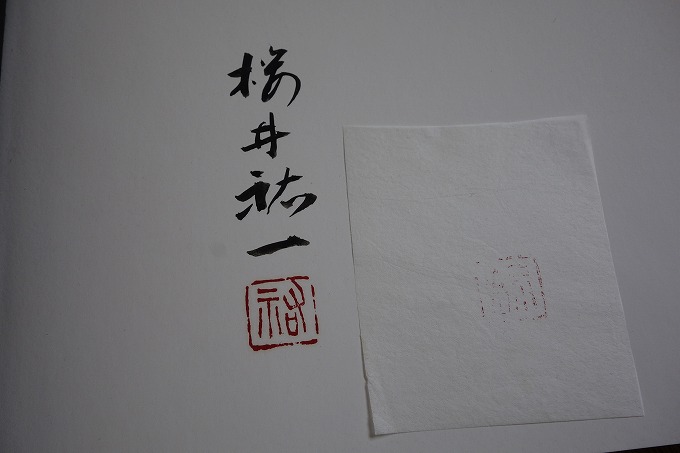 桜井祐一
祐